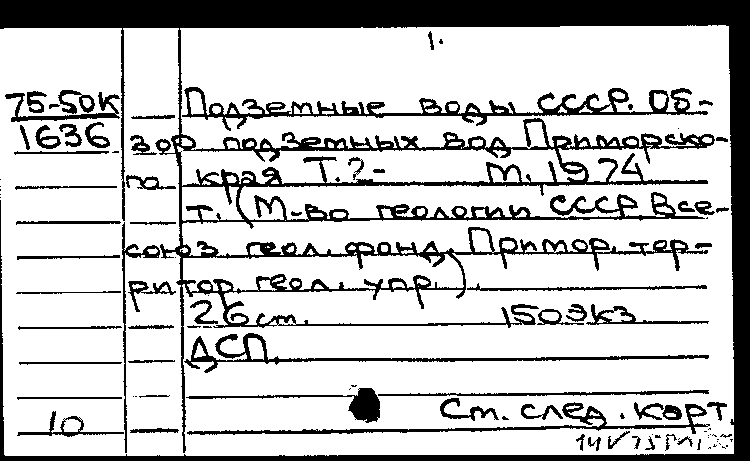 1.
75-50К Подземные воды СССР. Об-
1636 зор подземных вод Приморско-
го края Т.?- М. 1974
т. (М-во геологии СССР. Все-
союз. геол. фонд. Примор. тер-
ритор. геол. упр.).
26 см. 150 экз
ДСП.
10 См. след. карт.